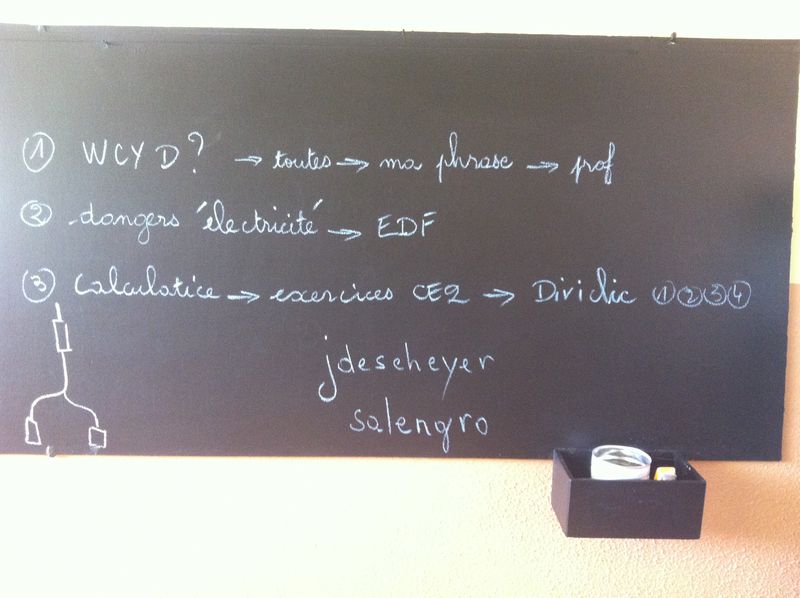 ① WCYD? → toutes → ma phrase → prof
② dangers électricité → EDF
③ Calculatice → exercices CE2 → Diviclic ① ② ③ ④
jdescheyer
salengro